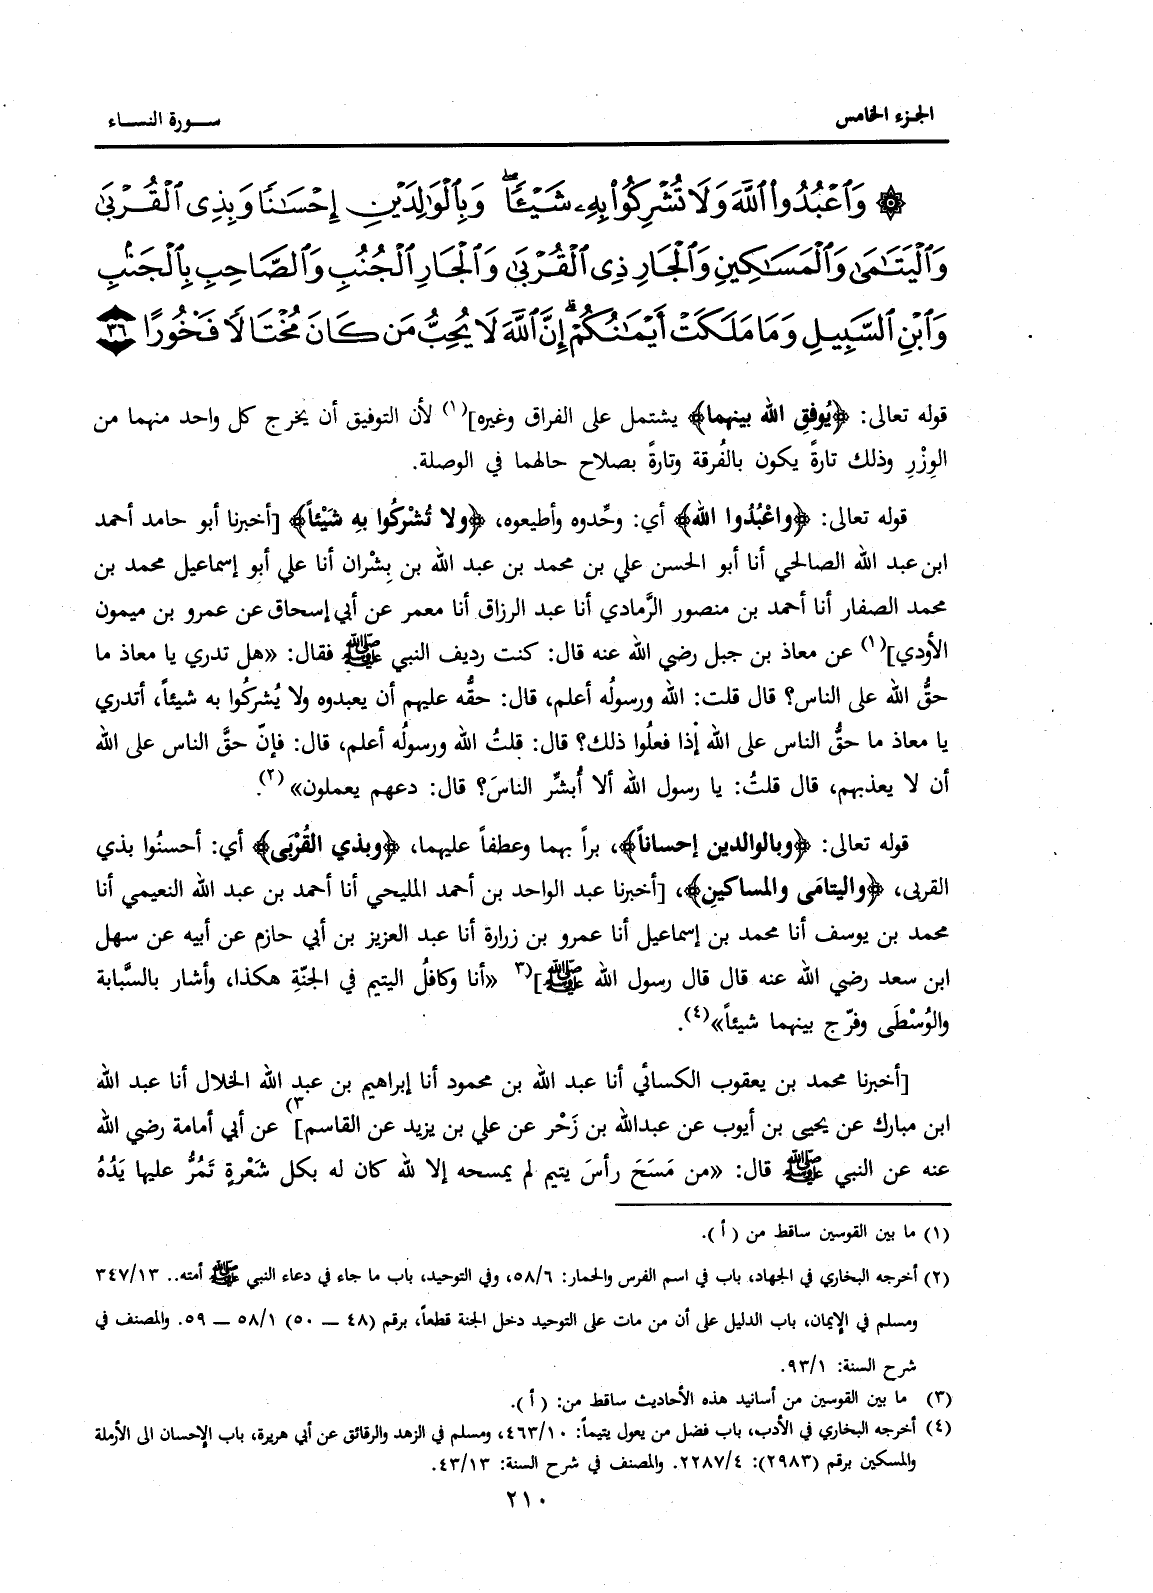 الجزء الخامس
سورة النساء
۞ وَٱعْبُدُوا۟ ٱللَّهَ وَلَا تُشْرِكُوا۟ بِهِۦ شَيْـًٔا ۖ وَبِٱلْوَٰلِدَيْنِ إِحْسَـٰنًا وَبِذِى ٱلْقُرْبَىٰ
وَٱلْيَتَـٰمَىٰ وَٱلْمَسَـٰكِينِ وَٱلْجَارِ ذِى ٱلْقُرْبَىٰ وَٱلْجَارِ ٱلْجُنُبِ وَٱلصَّاحِبِ بِٱلْجَنۢبِ
وَٱبْنِ ٱلسَّبِيلِ وَمَا مَلَكَتْ أَيْمَـٰنُكُمْ ۗ إِنَّ ٱللَّهَ لَا يُحِبُّ مَن كَانَ مُخْتَالًا فَخُورًا ٣٦
قوله تعالى: ﴿يُوفقِ الله بينهما﴾ يشتمل على الفراق وغيره](١) لأن التوفيق أن يخرج كل واحد منهما من
الوِزْرِ وذلك تارةً يكون بالفُرقة وتارةً بصلاح حالهما في الوصلة.
قوله تعالى: ﴿واعْبُدُوا الله﴾ أي: وحِّدوه وأطيعوه، ﴿ولا تُشْرِكُوا بهِ شَيْئاً﴾ [أخبرنا أبو حامد أحمد
ابن عبد الله الصالحي أنا أبو الحسن علي بن محمد بن عبد الله بن بِشْران أنا علي أبو إسماعيل محمد بن
محمد الصفار أنا أحمد بن منصور الرَّمادي أنا عبد الرزاق أنا معمر عن أبي إسحاق عن عمرو بن ميمون
الأودي](١) عن معاذ بن جبل رضي الله عنه قال: كنت رديف النبي ﷺ فقال: «هل تدري يا معاذ ما
حقُّ الله على الناس؟ قال قلت: الله ورسولُه أعلم، قال: حقُّه عليهم أن يعبدوه ولا يُشركُوا به شيئاً، أتدري
يا معاذ ما حقُّ الناس على الله إذا فعلُوا ذلك؟ قال: قلتُ الله ورسولُه أعلم، قال: فإنّ حقَّ الناس على الله
أن لا يعذبهم، قال قلتُ: يا رسول الله ألا أُبشِّر الناسَ؟ قال: دعهم يعملون» (٢).
قوله تعالى: ﴿وبالوالدين إحساناً﴾، براً بهما وعطفاً عليهما، ﴿وبذي القُرْبَى﴾ أي: أحسنُوا بذي
القربى، ﴿واليتامَى والمساكينِ﴾، [أخبرنا عبد الواحد بن أحمد المليحي أنا أحمد بن عبد الله النعيمي أنا
محمد بن يوسف أنا محمد بن إسماعيل أنا عمرو بن زرارة أنا عبد العزيز بن أبي حازم عن أبيه عن سهل
ابن سعد رضي الله عنه قال قال رسول الله ﷺ](٣ «أنا وكافلُ اليتيم في الجنّةِ هكذا، وأشار بالسَّبابة
والوُسْطَى وفرّج بينهما شيئاً»(٤).
[أخبرنا محمد بن يعقوب الكسائي أنا عبد الله بن محمود أنا إبراهيم بن عبد الله الخلال أنا عبد الله
ابن مبارك عن يحيى بن أيوب عن عبدالله بن زَحْر عن علي بن يزيد عن القاسم](٣ عن أبي أمامة رضي الله
عنه عن النبي ﷺ قال: «من مَسَحَ رأسَ يتيم لم يمسحه إلا لله كان له بكل شَعْرةٍ تَمُرُّ عليها يَدُهُ
(١) ما بين القوسين ساقط من ( أ ).
(٢) أخرجه البخاري في الجهاد، باب في اسم الفرس والحمار: ٥٨/٦، وفي التوحيد، باب ما جاء في دعاء النبي ﷺ أمته.. ٣٤٧/١٣
ومسلم في الإيمان، باب الدليل على أن من مات على التوحيد دخل الجنة قطعاً، برقم (٤٨ ـــ ٥٠) ٥٨/١ ـــ ٥٩. والمصنف في
شرح السنة: ٩٣/١.
(٣) ما بين القوسين من أسانيد هذه الأحاديث ساقط من: ( أ ).
(٤) أخرجه البخاري في الأدب، باب فضل من يعول يتيماً: ٤٦٣/١٠، ومسلم في الزهد والرقائق عن أبي هريرة، باب الإحسان الى الأرملة
والمسكين برقم (٢٩٨٣): ٢٢٨٧/٤. والمصنف في شرح السنة: ٤٣/١٣.
٢١٠